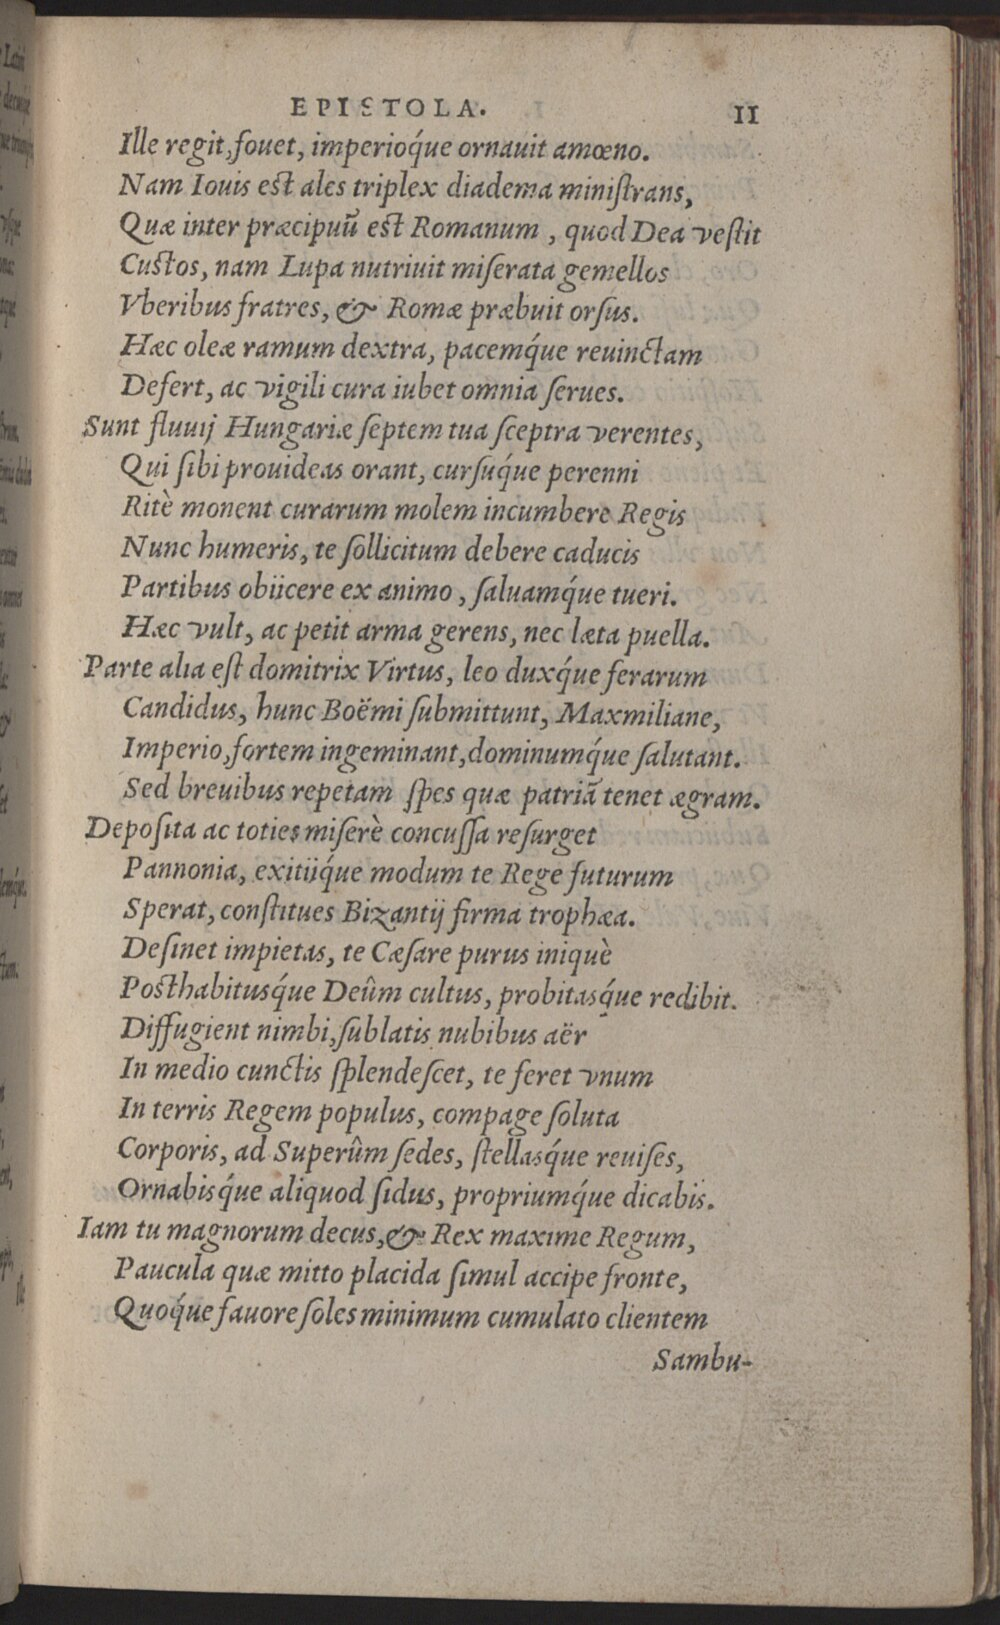 EPISTOLA. 11
Ille regit, fouet, imperioq́ue ornauit amœno.
Nam Iouis est ales triplex diadema miniſtrans,
Quæ inter præcipuũ est Romanum, quod Dea veſtit
Custos, nam Lupa nutriuit miſerata gemellos
Vberibus fratres, & Romæ præbuit orſus.
Hæc oleæ ramum dextra, pacemq́ue reuinctam
Defert, ac vigili cura iubet omnia ſerues.
Sunt fluuij Hungariæ ſeptem tua ſceptra verentes,
Qui ſibi prouideas orant, curſuq́ue perenni
Ritè monent curarum molem incumbere Regis
Nunc humeris, te ſollicitum debere caducis
Partibus obiicere ex animo, ſaluamq́ue tueri.
Hæc vult, ac petit arma gerens, nec læta puella.
Parte alia eſt domitrix Virtus, leo duxq́ue ferarum
Candidus, hunc Boëmi ſubmittunt, Maxmiliane,
Imperio, fortem ingeminant, dominumq́ue ſalutant.
Sed breuibus repetam ſpes quæ patriã tenet ægram.
Depoſita ac toties miſerè concuſſa reſurget
Pannonia, exitiiq́ue modum te Rege futurum
Sperat, conſtitues Bizantij firma trophæa.
Deſinet impietas, te Cæſare purus iniquè
Posthabitusq́ue Deûm cultus, probitasq́ue redibit.
Diffugient nimbi, ſublatis nubibus aër
In medio cunctis ſplendeſcet, te feret vnum
In terris Regem populus, compage ſoluta
Corporis, ad Superûm ſedes, ſtellasq́ue reuiſes,
Ornabisq́ue aliquod ſidus, propriumq́ue dicabis.
Iam tu magnorum decus, & Rex maxime Regum,
Paucula quæ mitto placida ſimul accipe fronte,
Quoq́ue fauore ſoles minimum cumulato clientem
Sambu-